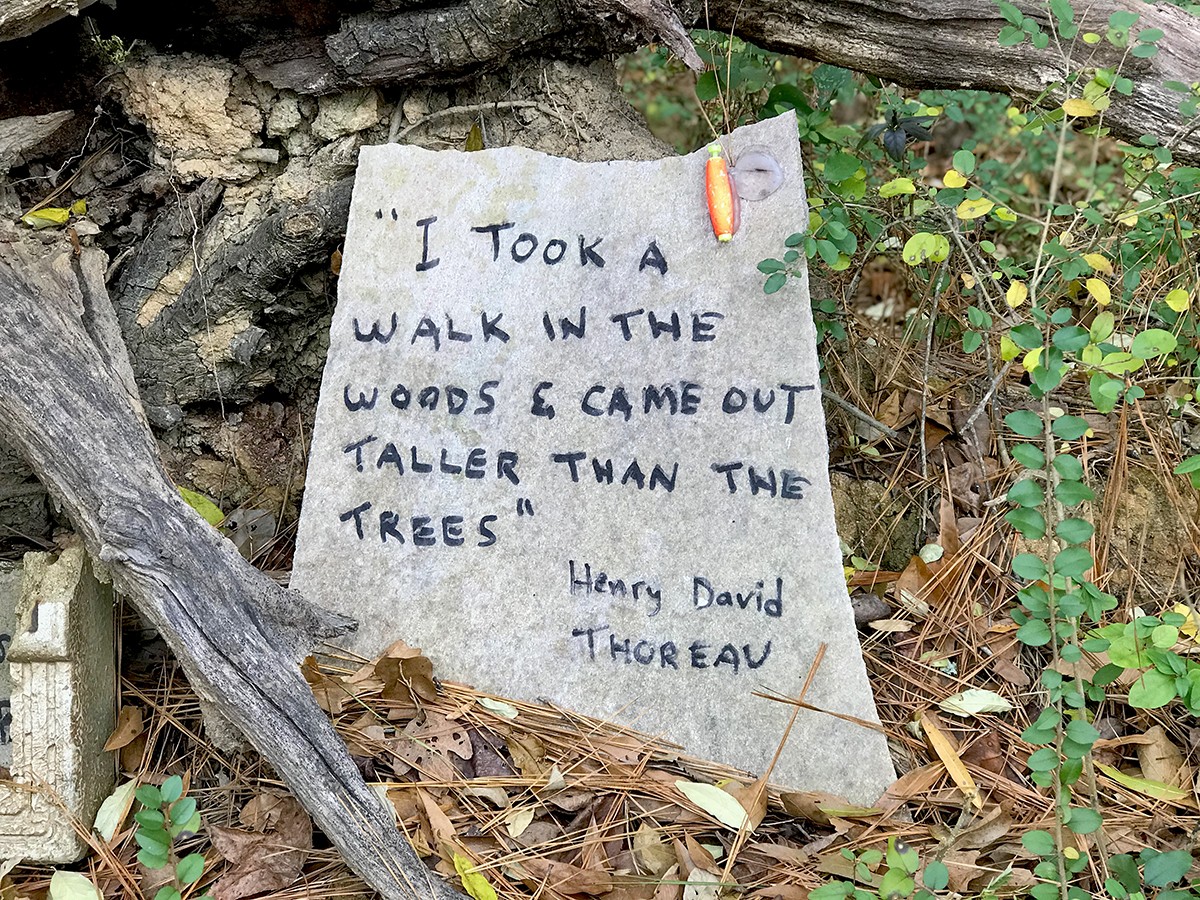 "I TOOK A
WALK IN THE
WOODS & CAME OUT
TALLER THAN THE
TREES"
Henry David
THOREAU